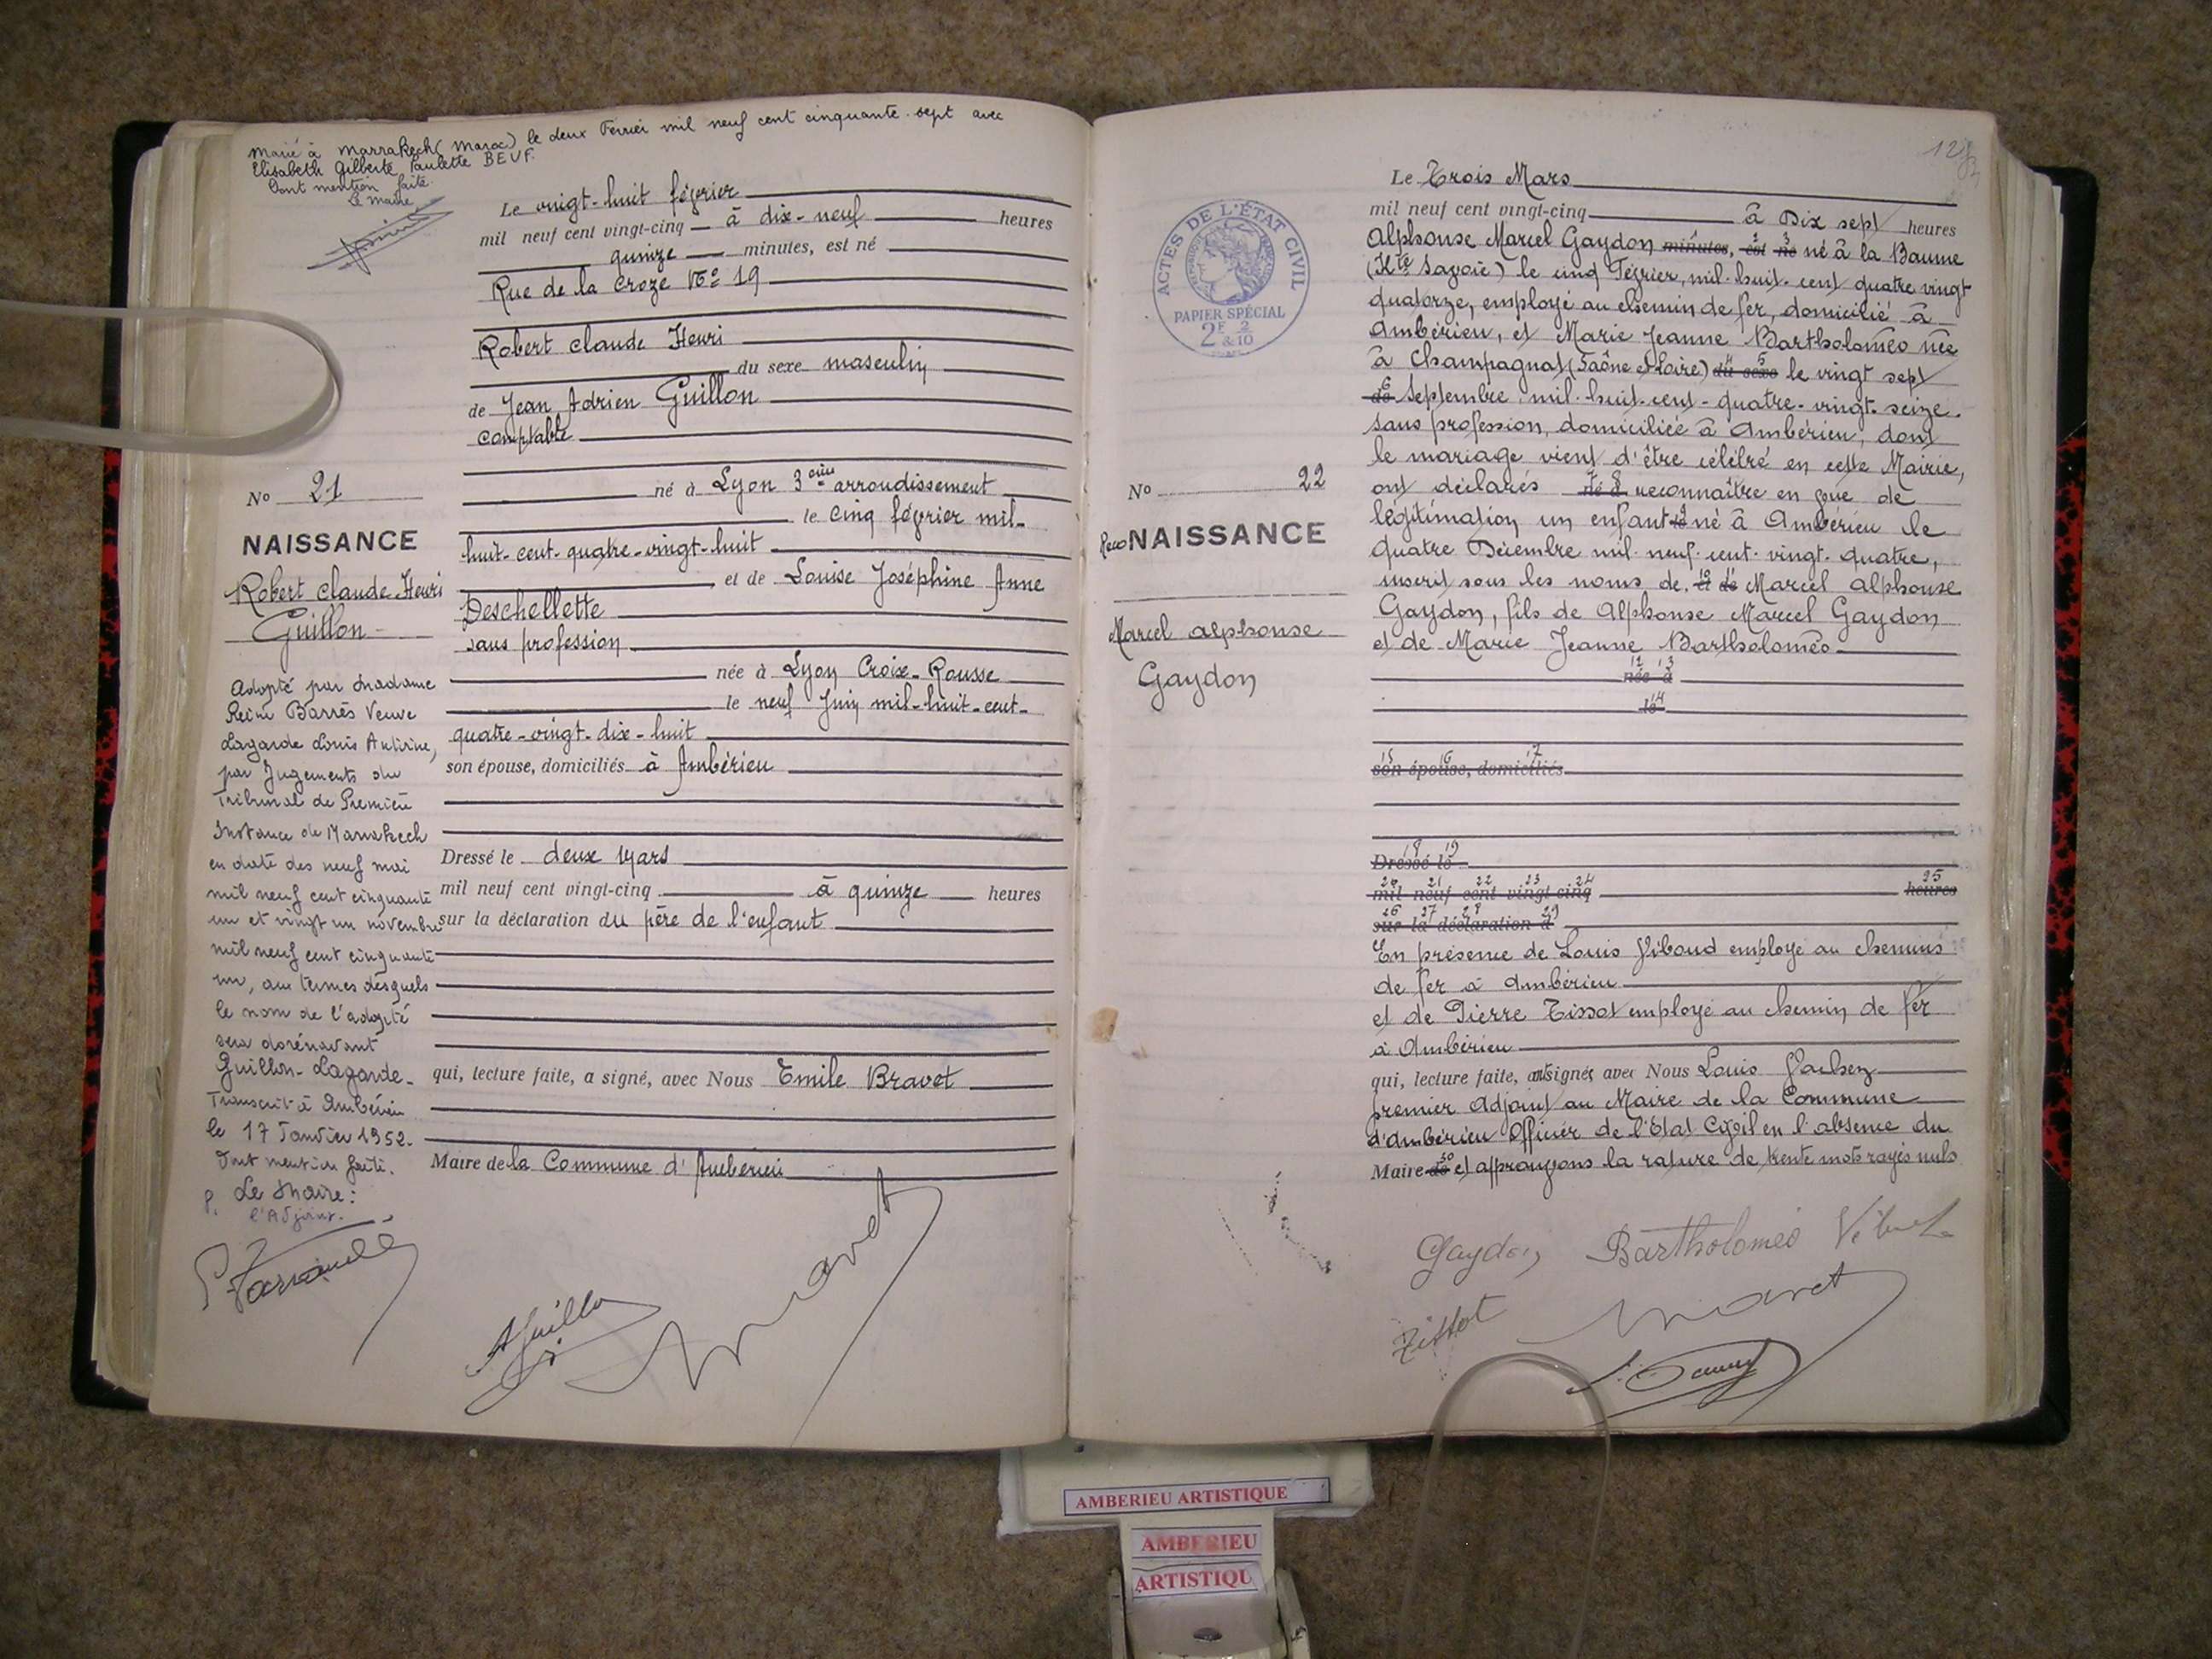 Marié à Marrakech (Maroc) le deux Février mil neuf cent cinquante-sept avec
Elisabeth Gilberte Paulette BEUF.
Dont mention faite.
Le maire
Le vingt-huit février
mil neuf cent vingt-cinq à dix-neuf heures
quinze minutes, est né
Rue de la Croze No 19
Robert Claude Henri
du sexe masculin
de Jean Adrien Guillon
comptable
né à Lyon 3ème arrondissement
le cinq février mil-
huit-cent-quatre-vingt-huit
et de Louise Joséphine Anne
Deschellette
sans profession
née à Lyon Croix-Rousse
le neuf Juin mil-huit-cent-
quatre-vingt-dix-huit
son épouse, domiciliés à Ambérieu
Dressé le deux Mars
mil neuf cent vingt-cinq à quinze heures
sur la déclaration du père de l'enfant
qui, lecture faite, a signé, avec Nous Emile Bravet
Maire de la Commune d'Ambérieu
No 21
NAISSANCE
Robert Claude Henri
Guillon
Adopté par Madame
Reine Barrès Veuve
Lagarde Louis Antoine,
par Jugements du
Tribunal de Première
Instance de Marrakech
en date des neuf mai
mil neuf cent cinquante
un et vingt un novembre
mil neuf cent cinquante
un, aux termes desquels
le nom de l'adopté
sera dorénavant
Guillon-Lagarde-
Transcrit à Ambérieu
le 17 Janvier 1952.
Dont mention faite.
P. Le Maire:
l'Adjoint.
AGuillon
Bravet
ACTES DE L'ÉTAT CIVIL
PAPIER SPÉCIAL
2F 2/10
&
No 22
Reco NAISSANCE
Marcel Alphonse
Gaydon
Le Trois Mars
mil neuf cent vingt-cinq à Dix sept heures
Alphonse Marcel Gaydon minutes, est né né à la Baume
(Hte Savoie) le cinq Février, mil-huit-cent quatre vingt
quatorze, employé au chemin de fer, domicilié à
Ambérieu, et Marie Jeanne Bartholoméo née
à Champagnat (Saône et Loire) du sexe le vingt sept
de Septembre mil-huit-cent-quatre-vingt-seize.
sans profession, domiciliée à Ambérieu, dont
le mariage vient d'être célébré en cette Mairie,
ont déclarés né à reconnaître en vue de
légitimation un enfant le né à Ambérieu le
quatre Décembre mil-neuf-cent-vingt-quatre,
inscrit sous les noms de et de Marcel Alphonse
Gaydon, fils de Alphonse Marcel Gaydon
et de Marie Jeanne Bartholoméo
née à
le
son épouse, domiciliés
Dressé le
mil neuf cent vingt-cinq heures
sur la déclaration d
En présence de Louis Viboud employé au chemins
de fer à Ambérieu
et de Pierre Tissot employé au chemin de fer
à Ambérieu
qui, lecture faite, ont signés avec Nous Louis
premier Adjoint au Maire de la Commune
d'Ambérieu Officier de l'Etat Civil en l'absence du
Maire de et approuvons la rature de trente mots rayés nuls
Gaydon Bartholoméo
Tissot Bravet
AMBERIEU ARTISTIQUE
AMBERIEU
ARTISTIQU